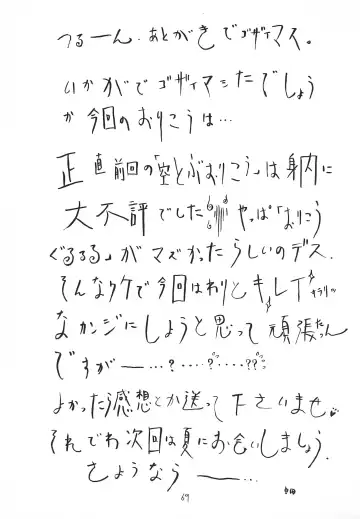 つるーん、あとがきでゴザイマス。
いかがでゴザイマシたでしょう
か今回のおりこうは…
正直前回の「空とぶおりこう」は身内に
大不評でした やっぱ「おりこう
ぐるるる」がマズかったらしいのデス.
そんなワケで今回はわりとキレイ
なカンジにしようと思って頑張たっん
ですがー…?‥‥?‥‥??
よかったら感想とか送って下さいませ。
それでわ次回は夏にお会いしましょう.
さようならー…
69